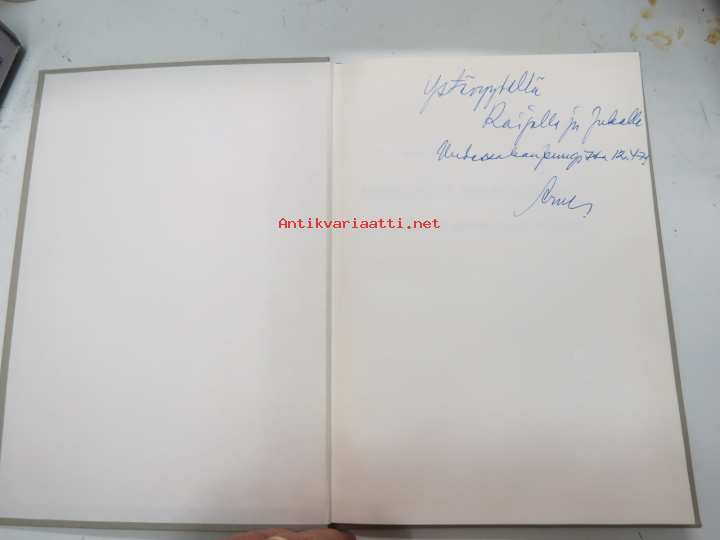 Ystävyydellä
Raijalle ja Jukalle
Uudessakaupungissa 12.4.71
Antikvariaatti.net